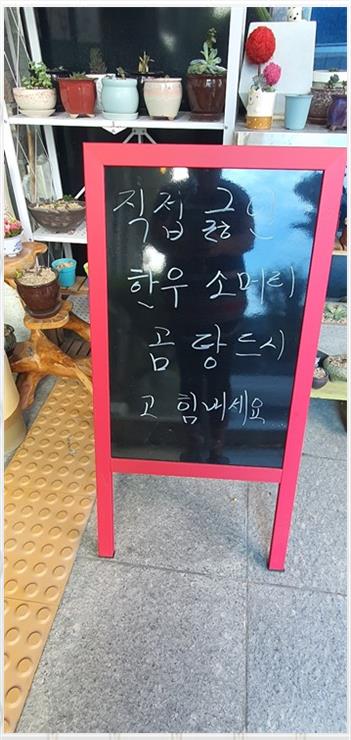 직접 끓인
한우 소머리
곰 탕 드시
고 힘내세요